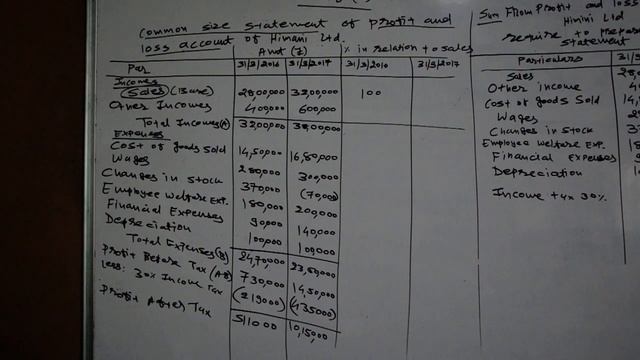 Common size statement of profit and
loss account of Himani Ltd.
Amt (₹) % in relation to sales
Par 31/3/2016 31/3/2017 31/3/2016 31/3/2017
Incomes
(Sales) (Base) 2800,000 3200,000 100
Other Incomes 400,000 600,000
Total Incomes (A) 3200,000 3800,000
Expenses
Cost of goods sold 14,50,000 16,80,000
Wages 280,000 300,000
Changes in stock 370,000 (70,000)
Employee welfare Exp. 180,000 200,000
Financial Expenses 90,000 140,000
Depreciation 100,000 100,000
Total Expenses (B) 24,70,000 23,50,000
Profit Before Tax (A-B) 730,000 14,50,000
less: 30% Income Tax (219000) (435000)
Profit After Tax 511000 10,15,000
Sum From Profit and loss
Himini Ltd
require to prepare
Statement
Particulars 31/3
Sales 28
Other income 4
Cost of goods Sold 14,
Wages 2
Changes in stock 37
Employee welfare Exp. 18
Financial Expenses 9
Depreciation 10
Income tax 30%